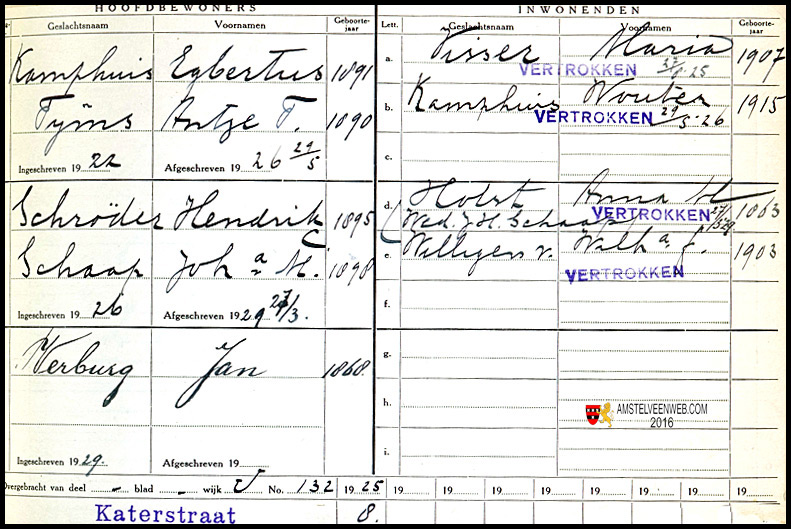 HOOFDBEWONERS
INWONENDEN
Geslachtsnaam Voornamen Geboorte-jaar Lett. Geslachtsnaam Voornamen Geboorte-jaar
Kamphuis Egbertus 1891 a. Visser Maria 1907
VERTROKKEN 25
Tijms Antje T. 1890 b. Kamphuis Wouter 1915
VERTROKKEN 29/5-26
c.
Ingeschreven 1922 Afgeschreven 1926 29/5
Schröder Hendrik C 1895 d. Holst Anna M 1863
Wed. J.H. Schaap VERTROKKEN 27/3 29
Schaap Joha M. 1898 e. Willigen v. Wilha J. 1903
VERTROKKEN
f.
Ingeschreven 1926 Afgeschreven 1929 27/3.
Verburg Jan 1868 g.
h.
AMSTELVEENWEB.COM
2016
i.
Ingeschreven 1929. Afgeschreven 19
Overgebracht van deel - blad - wijk U No. 132 1925 19 19 19 19 19 19 19 19
Katerstraat 8.